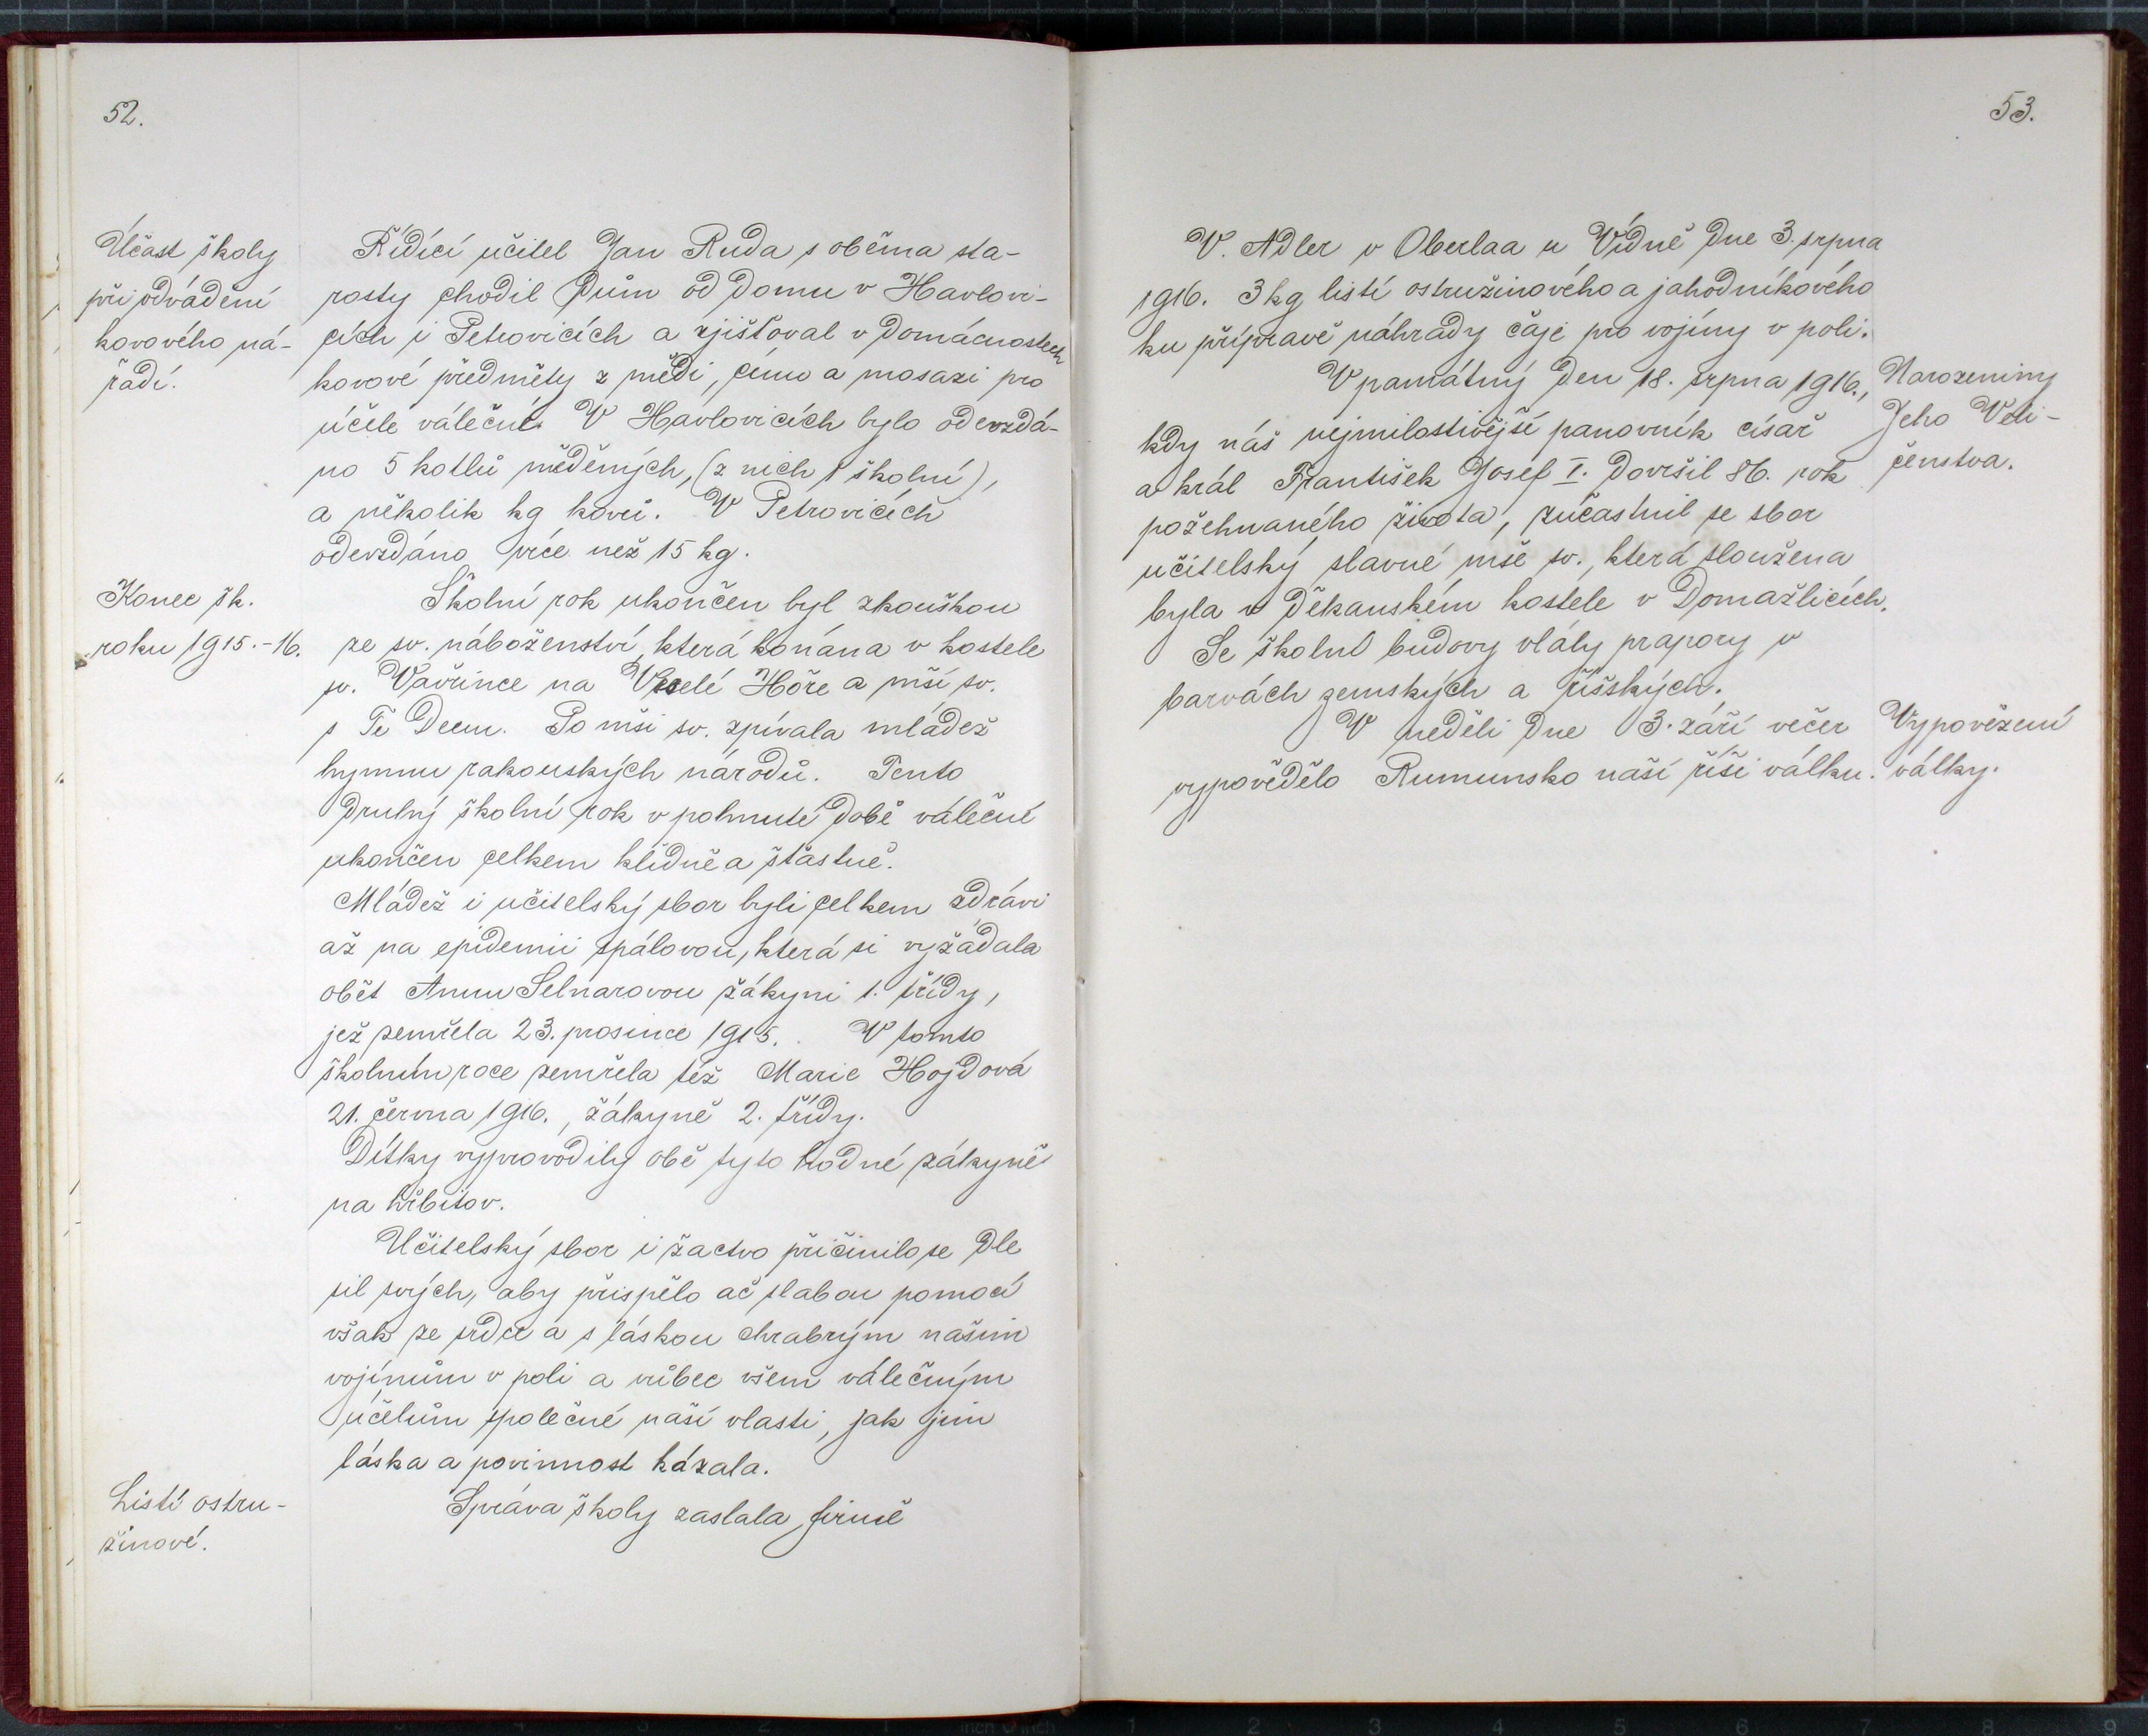 52.
Účast školy
při odvádění
kovového ná-
řadí.
Řídící učitel Jan Ruda s oběma sta-
rosty chodil dům od domu v Havlovi-
cích i Petrovicích a zjišťoval v domácnostech
kovové předměty z mědi, cínu a mosazi pro
účele válečné. V Havlovicích bylo odevzdá-
no 5 kotlů měděných, (z nich 1 školní),
a několik kg kovů. V Petrovicích
odevzdáno více než 15 kg.
Konec šk.
roku 1915.-16.
Školní rok ukončen byl zkouškou
ze sv. náboženství, která konána v kostele
sv. Vavřince na Veselé Hoře a mší sv.
s Te Deum. Po mši sv. zpívala mládež
hymnu rakouských národů. Tento
druhý školní rok v pohnuté době válečné
ukončen celkem klidně a šťastně.
Mládež i učitelský sbor byli celkem zdrávi
až na epidemii spálovou, která si vyžádala
oběť Annu Selnarovou žákyni 1. třídy,
jež zemřela 23. prosince 1915. V tomto
školním roce zemřela též Marie Hojdová
21. června 1916., žákyně 2. třídy.
Dítky vyprovodily obě tyto hodné žákyně
na hřbitov.
Učitelský sbor i žactvo přičinilo se dle
sil svých, aby přispělo ač slabou pomocí
však ze srdce a s láskou chrabrým našim
vojínům v poli a vůbec všem válečným
účelům společné naší vlasti, jak jim
láska a povinnost kázala.
Listí ostru-
žinové.
Správa školy zaslala firmě
53.
V. Adler v Oberlaa u Vídně dne 3. srpna
1916. 3 kg listí ostružinového a jahodníkového
ku přípravě náhrady čaje pro vojíny v poli.
V památný den 18. srpna 1916.,
kdy náš nejmilostivější panovník císař
a král František Josef I. dovršil 86. rok
požehnaného života, zúčastnil se sbor
učitelský slavné mše sv., která sloužena
byla v děkanském kostele v Domažlicích.
Se školní budovy vlály prapory v
barvách zemských a říšských.
Narozeniny
Jeho Veli-
čenstva.
V neděli dne 3. září večer
vypovědělo Rumunsko naší říši válku.
Vypovězení
války.